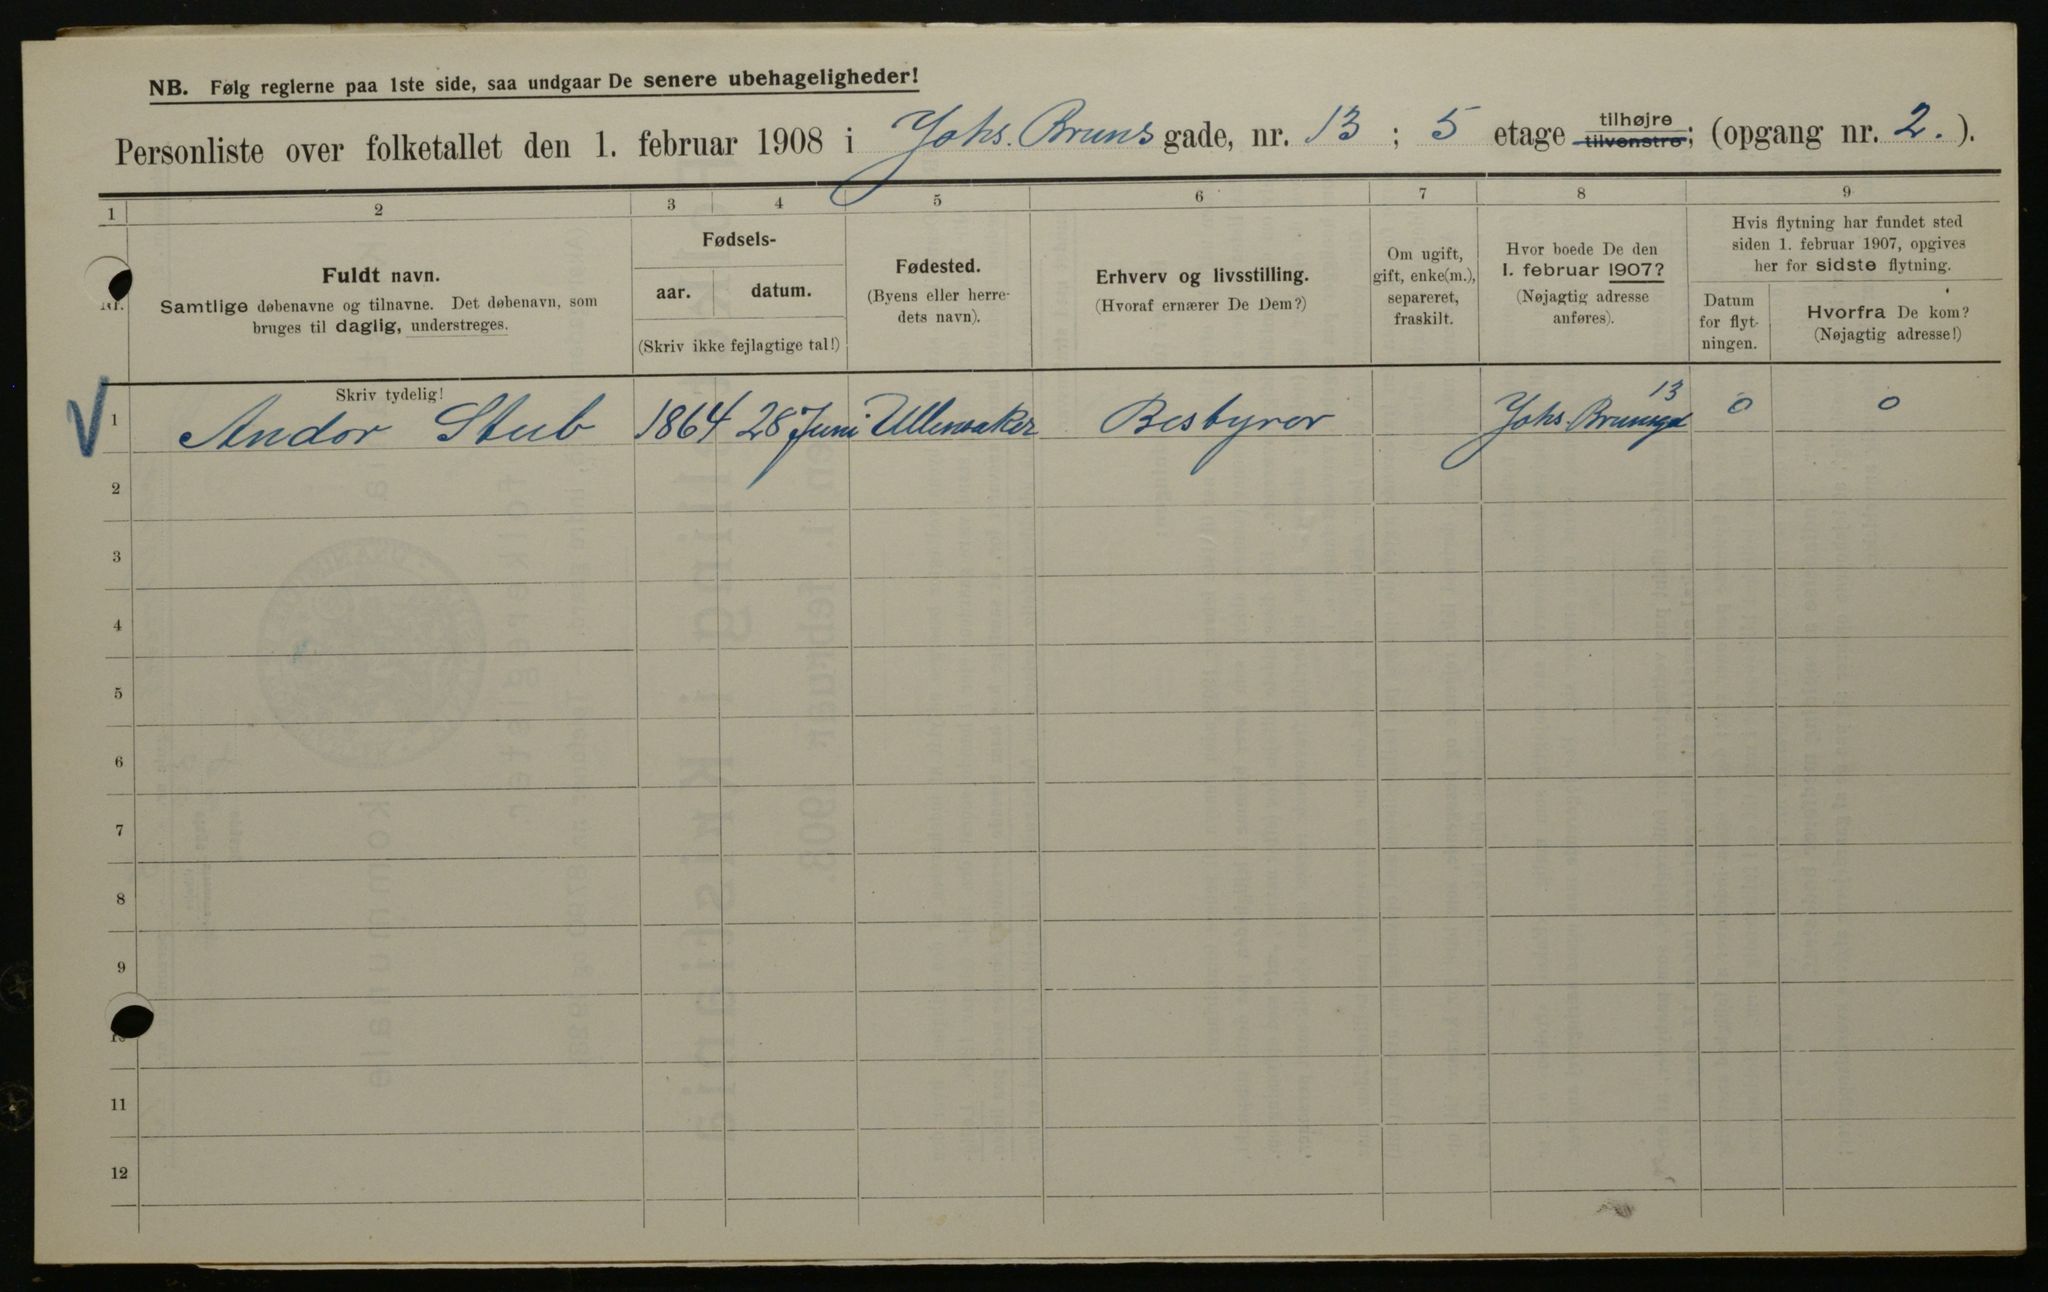 NB. Følg reglerne paa 1ste side, saa undgaar De senere ubehageligheder!
Personliste over folketallet den 1. februar 1908 i Johs. Bruns gade, nr. 13 ; 5 etage tilhøjre tilvenstre; (opgang nr. 2. ).
1 2 3 4 5 6 7 8 9
Nr.
Fuldt navn.
Samtlige døbenavne og tilnavne. Det døbenavn, som
bruges til daglig, understreges.
Fødsels-
aar. datum.
(Skriv ikke fejlagtige tal!)
Fødested.
(Byens eller herre-
dets navn).
Erhverv og livsstilling.
(Hvoraf ernærer De Dem?)
Om ugift,
gift, enke(m.),
separeret,
fraskilt.
Hvor boede De den
1. februar 1907?
(Nøjagtig adresse
anføres).
Hvis flytning har fundet sted
siden 1. februar 1907, opgives
her for sidste flytning.
Datum
for flyt-
ningen.
Hvorfra De kom?
(Nøjagtig adresse!)
Skriv tydelig!
13
V 1 Andor Stub 1864 28 Juni Ullensaker Bestyrer Johs. Brunsgd 0 0
2
3
4
5
6
7
8
9
10
11
12